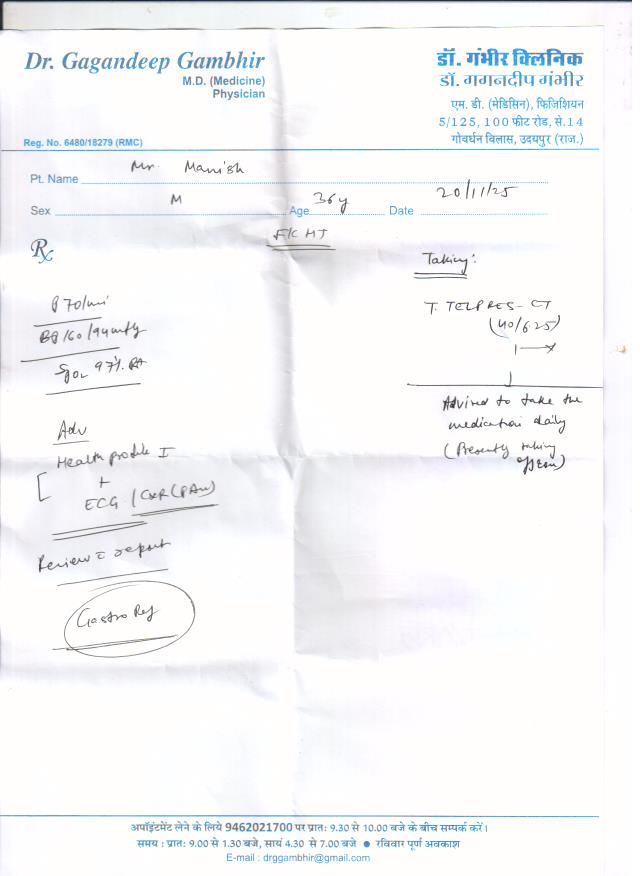 Dr. Gagandeep Gambhir
M.D. (Medicine)
Physician
Reg. No. 6480/18279 (RMC)
डॉ. गंभीर क्लिनिक
डॉ. गगनदीप गंभीर
एम. डी. (मेडिसिन), फिजिशियन
5/125, 100 फीट रोड, से.14
गोवर्धन विलास, उदयपुर (राज.)
Pt. Name Mr. Manish
Sex M Age 36y Date 20/11/25
F/C HT
Rx
P 70/min
BP 160/94 mmHg
SpO2 97% RA
Adv
Health profile I
+
ECG / CXR (PAV)
Review c report
Gastro Ref
Taking:
T. TELPRES-CT
(40/6.25)
1
Advised to take the
medication daily
(Presently taking
)
अपॉइंटमेंट लेने के लिये 9462021700 पर प्रातः 9.30 से 10.00 बजे के बीच सम्पर्क करें।
समय : प्रातः 9.00 से 1.30 बजे, सायं 4.30 से 7.00 बजे ● रविवार पूर्ण अवकाश
E-mail : drggambhir@gmail.com